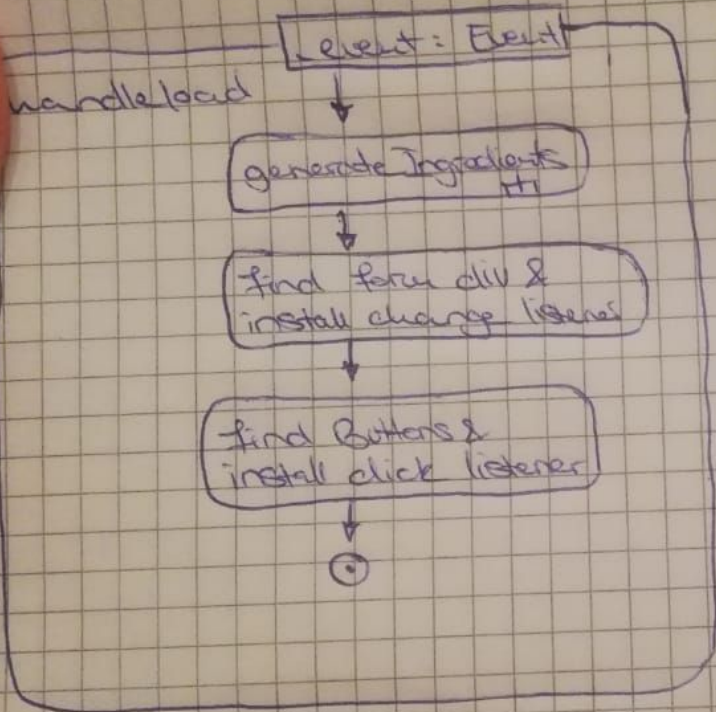 _event: Event
handleload
generate Ingredients
find form div &
install change listener
find Buttons &
install click listener